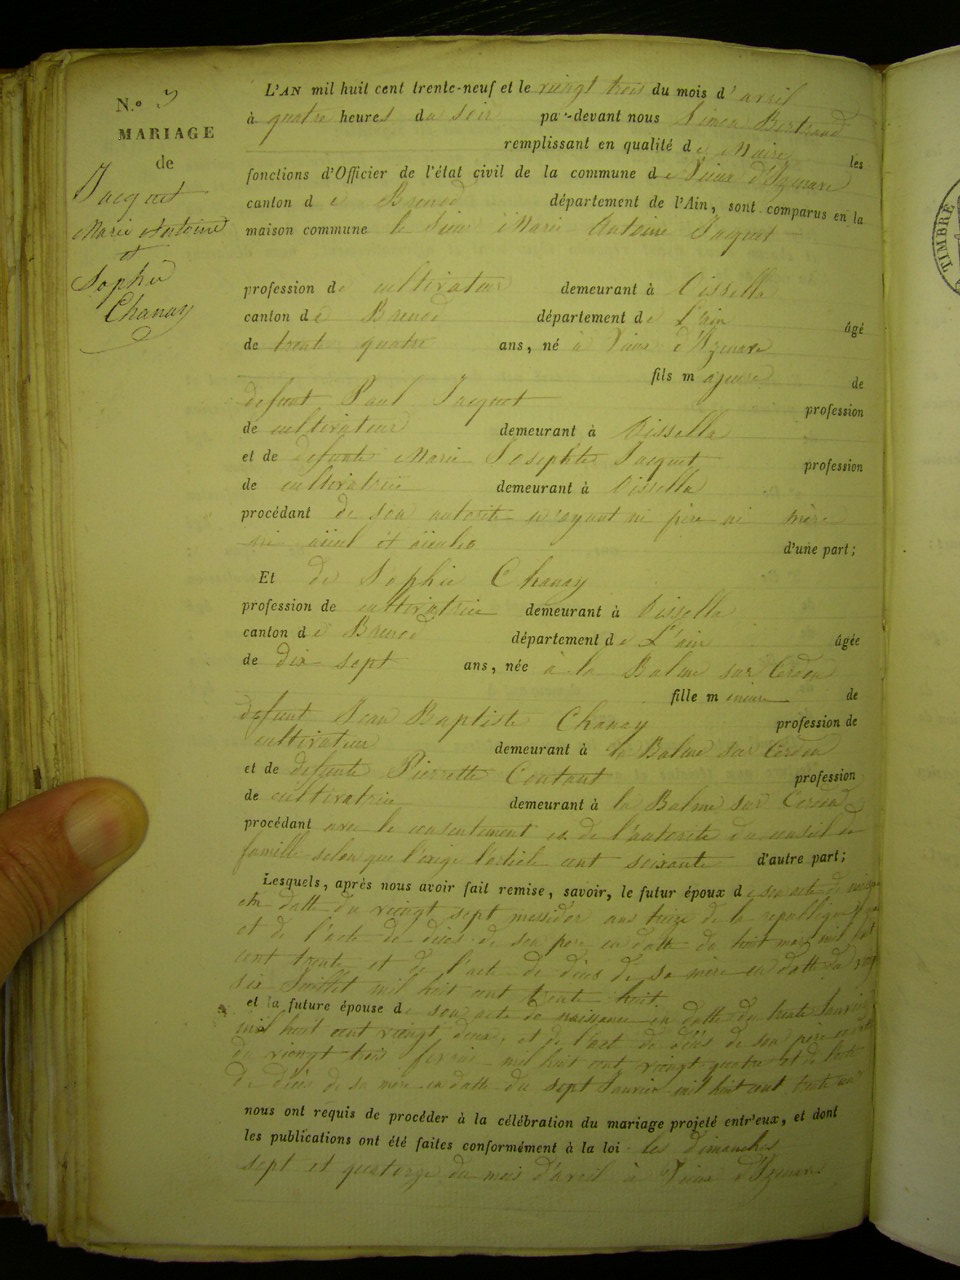 N.o 9
MARIAGE
de
Jacquet
Marie Antoine
et
Sophie
Chanay
L'AN mil huit cent trente-neuf et le viengt trois du mois d'avril
à quatre heures du soir par-devant nous Simon Bertrand
remplissant en qualité de Maire les
fonctions d'Officier de l'état civil de la commune de Vieux d'Izenave
canton de Brenod département de l'Ain, sont comparus en la
maison commune le Sieur Marie Antoine Jacquet
profession de cultivateur demeurant à Oisselle
canton de Brenod département de L'ain âgé
de trent quatre ans, né à Vieux d'Izenave
fils majeure de
defunt Paul Jacquet profession
de cultivateur demeurant à Oisselle
et de defunte Marie Josephte Jacquet profession
de cultivatrice demeurant à Oisselle
procédant de son autorite n'ayant ni père ni mère
ni aïeul et aïeules d'une part;
Et de Sophie Chanay
profession de cultivatrice demeurant à Oisselle
canton de Brenod département de L'ain âgée
de dix sept ans, née à la Balme sur Cerdon
fille mineure de
defunt Jean Baptiste Chanay profession de
cultivateur demeurant à la Balme sur Cerdon
et de defunte Pierrette Coutant profession
de cultivatrice demeurant à la Balme sur Cerdon
procédant avec le consentement et de l'autorite du conseil de
famille selon que l'exige l'article cent soixante d'autre part;
Lesquels, après nous avoir fait remise, savoir, le futur époux de son acte de
en datte du viengt sept messidor ans treize de la republique
et de l'acte de déces de son pere en datte du huit mars mil huit
cent trente et de l'acte de déces de sa mère en datte du
six Juillet mil huit cent trente huit
et la future épouse de son acte de naissance en datte du trente Janvier
mil huit cent viengt deux, et de l'act de déces de son père
du viengt trois fevrier mil huit cent viengt quatre et de l'acte
de déces de sa mere en datte du sept Janvier mil huit cent trente
nous ont requis de procéder à la célébration du mariage projeté entr'eux, et dont
les publications ont été faites conformément à la loi les dimanches
sept et quatorze du mois d'avril à Vieux d'Izenave
TIMBRE